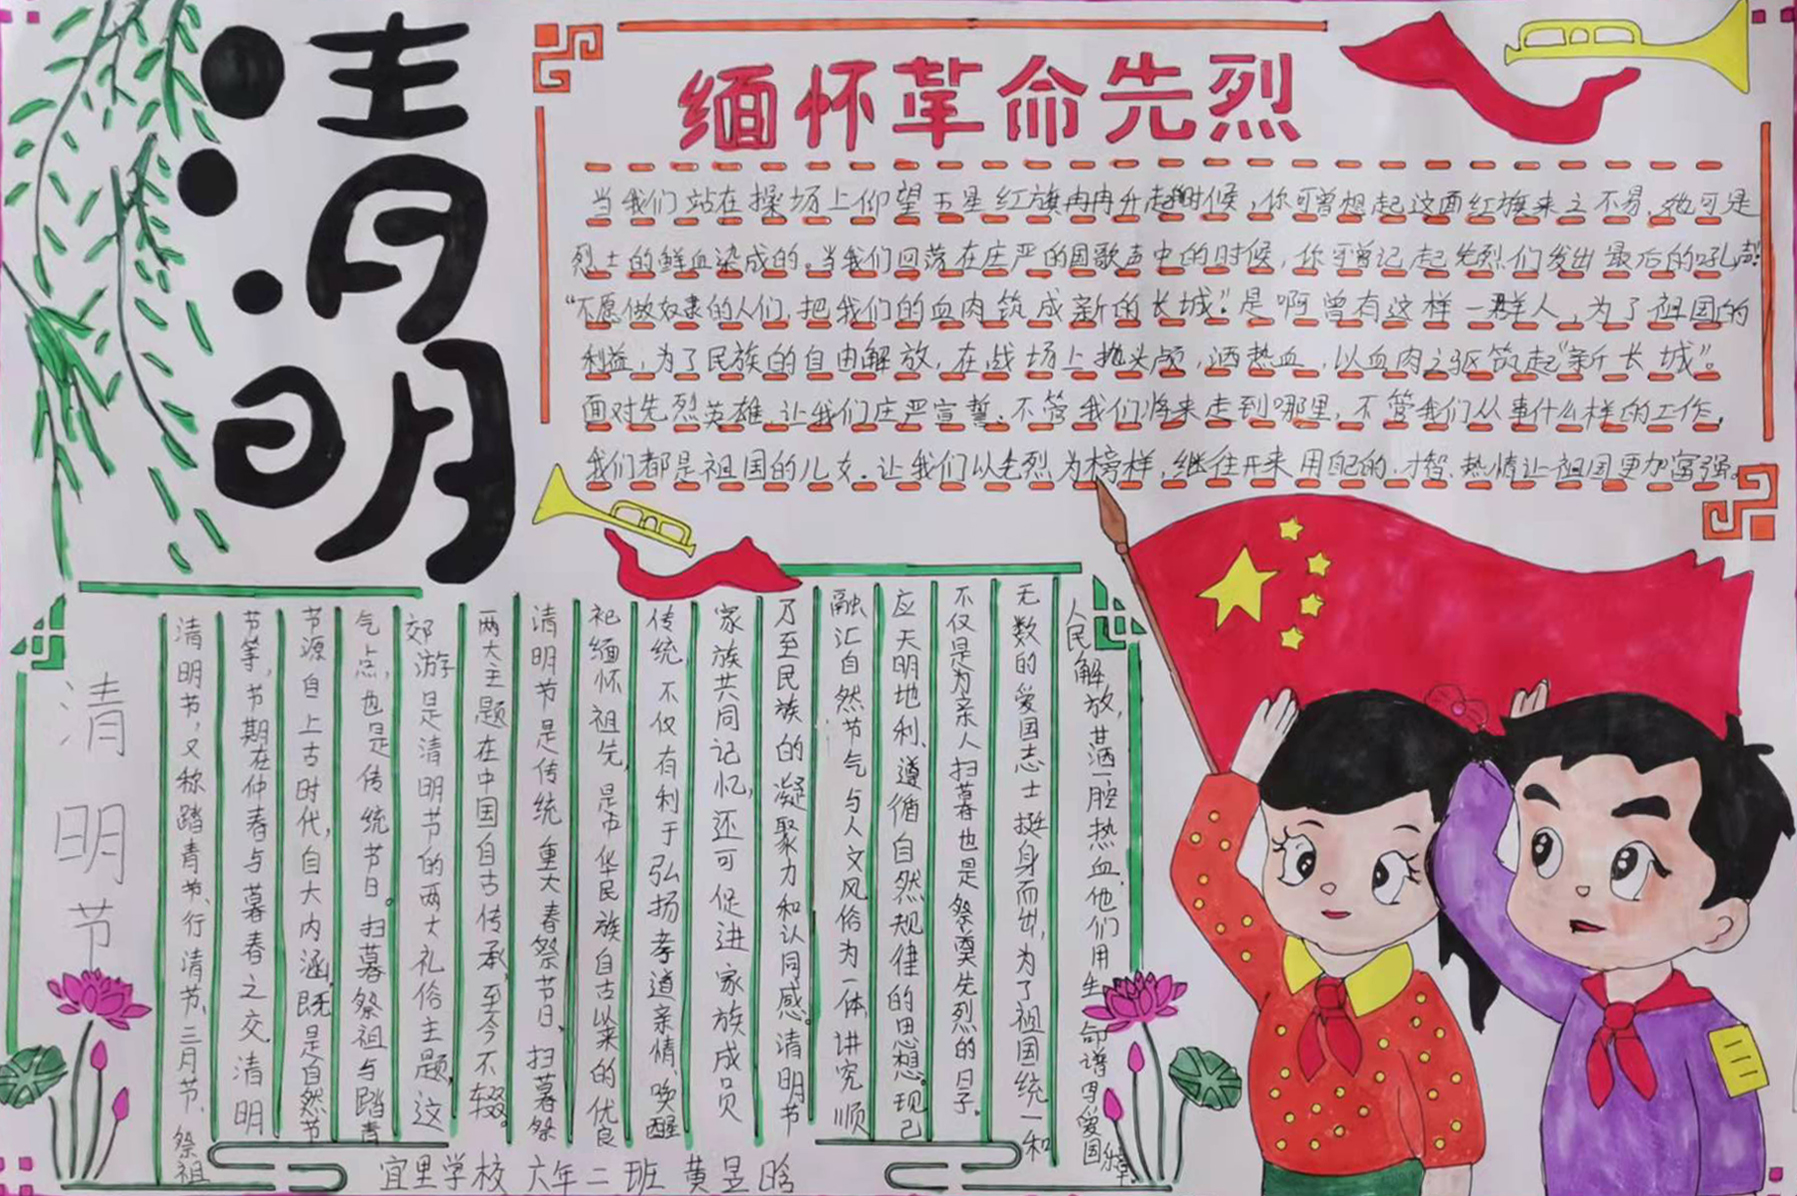 清明
缅怀革命先烈
当我们站在操场上仰望五星红旗冉冉升起的时候，你可曾想起这面红旗来之不易，她可是
烈士的鲜血染成的。当我们回落在庄严的国歌声中的时候，你可曾记起先烈们发出最后的吼声！
“不愿做奴隶的人们，把我们的血肉筑成新的长城”。是啊曾有这样一群人，为了祖国的
利益，为了民族的自由解放，在战场上抛头颅，洒热血，以血肉之驱筑起“新长城”。
面对先烈英雄，让我们庄严宣誓：不管我们将来走到哪里，不管我们从事什么样的工作，
我们都是祖国的儿女。让我们以先烈为榜样，继往开来用自己的才智、热情让祖国更加富强。
清明节
清明节，又称踏青节、行清节、三月节、祭祖
节等，节期在仲春与暮春之交。清明
节源自上古时代，自大内涵，既是自然节
气点，也是传统节日。扫暮祭祖与踏青
郊游是清明节的两大礼俗主题，这
两大主题在中国自古传承，至今不辍。
清明节是传统重大春祭节日，扫暮祭
祀缅怀祖先，是中华民族自古以来的优良
传统，不仅有利于弘扬孝道亲情、唤醒
家族共同记忆，还可促进家族成员
乃至民族的凝聚力和认同感。清明节
融汇自然节气与人文风俗为一体，讲究顺
应天明地利、遵循自然规律的思想。现已
不仅是为亲人扫暮也是祭奠先烈的日子。
无数的爱国志士挺身而出，为了祖国统一和
人民解放，甘洒一腔热血，他们用生命谱写爱国
宜里学校 六年二班 黄昱晗